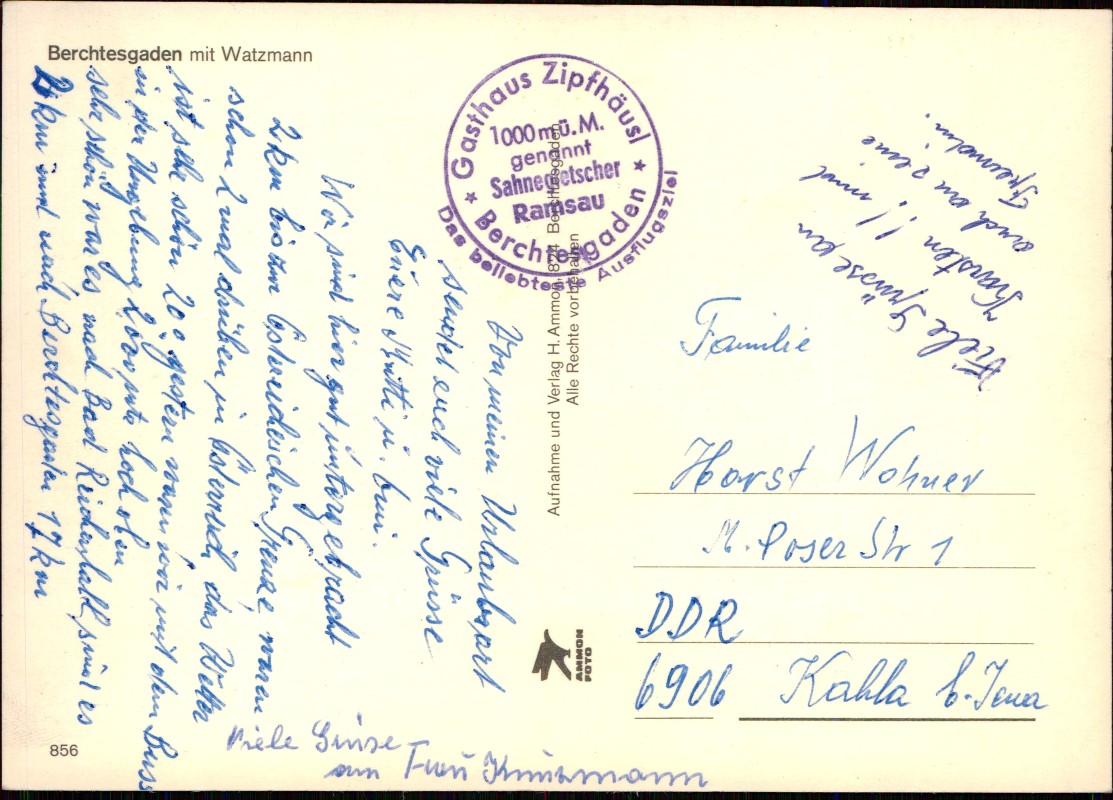 Berchtesgaden mit Watzmann
Von meinen Urlaubsort
sendet euch viele Grüsse
Euere Mutti u.
Wir sind hier gut untergebracht
2 km bis zur Österreichischen Grenze, waren
schon 2 mal drüben in Österreich, das Wetter
ist sehr schön 20° gestern waren wir mit dem Buss
in der Umgebung 2000 mtr hoch oben
sehr schön war es nach Bad Reichenhall sind es
20 km und nach Berchtesgaden 17 km
Viele Grüse
an Frau
856
Gasthaus Zipfhäusl
1000 m ü. M.
genannt
Sahneg'etscher
Ramsau
Berchtesgaden
Das beliebteste Ausflugsziel
Aufnahme und Verlag H. Ammon, 824 Berchtesgaden
Alle Rechte vorbehalten
AMMON
FOTO
Viele Grüsse an
Karsten !! und
auch an seine
Familie
Horst Wohner
M. Poser Str 1
DDR
6906 Kahla b. Jena